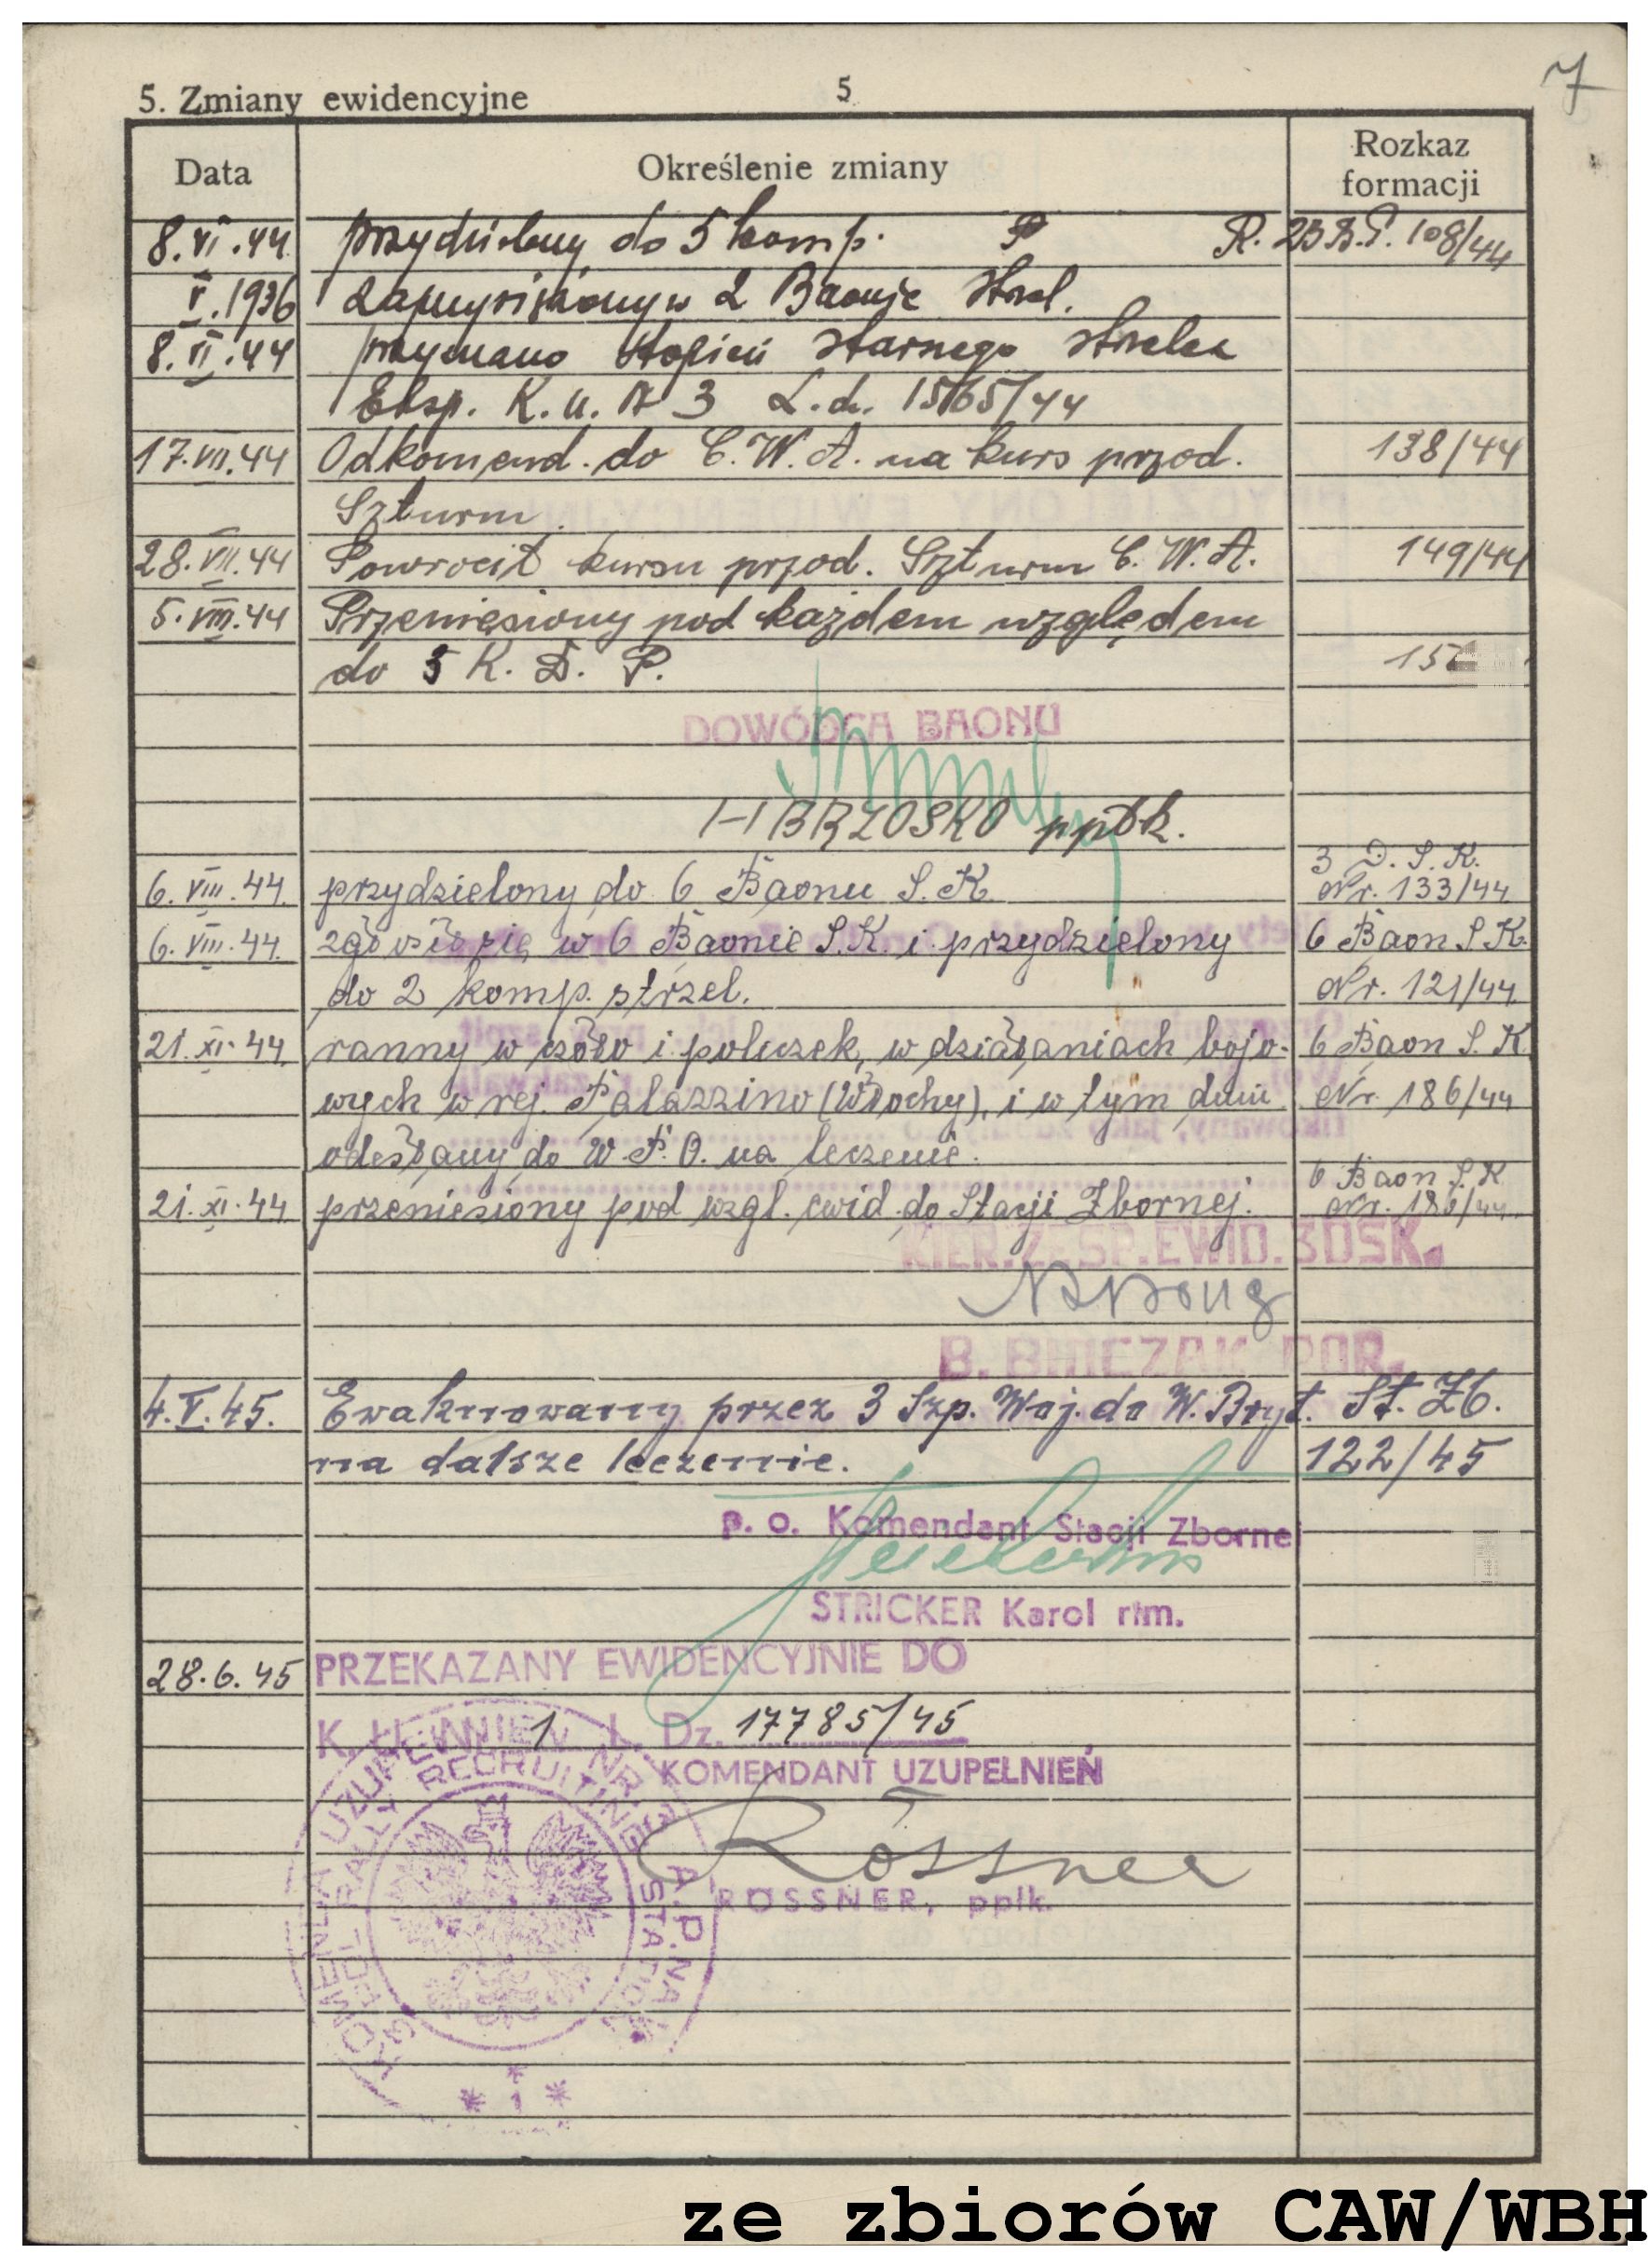 7
5. Zmiany ewidencyjne 5
Data Określenie zmiany Rozkaz formacji
8.VI.44 przydzielony do 5 komp. R. 108/44
V.1936 zaprzysiężony w 2 Baonie Strzel.
8.VI.44 przyznano stopień starszego strzelca
Eksp. K.U. N 3 L.dz. 1565/44
17.VII.44 Odkomend. do C.W.A. na kurs przod. 138/44
Szturm.
28.VII.44 Powrócił kursu przod. Szturm C.W.A. 149/44
5.VIII.44 Przeniesiony pod każdem względem
do 3 K. D. P. 15
DOWÓDCA BAONU
H BRZOSKO ppłk.
3 D.S.K.
6.VIII.44. przydzielony do 6 Baonu S.K. Nr. 133/44
6.VIII.44. zgłosił się w 6 Baonie S.K. i przydzielony 6 Baon S.K.
do 2 komp. strzel. Nr. 121/44
21.XI.44. ranny w czoło i policzek, w działaniach bojo- 6 Baon S.K
wych w rej. Palazzino (Włochy), i w tym dniu Nr. 186/44
odesłany do W.P.O. na leczenie.
6 Baon S.K
21.XI.44 przeniesiony pod wzgl. ewid. do Stacji Zbornej. Nr. 186/44.
KIER.ZESP.EWID.3DSK.
POR.
4.V.45. Ewakuowany przez 3 Szp. Woj. do W. Bryt. St. Zb.
na dalsze leczenie. 122/45
p. o. Komendant Stacji Zbornej
STRICKER Karol rtm.
28.6.45 PRZEKAZANY EWIDENCYJNIE DO
K. 1 L. Dz. 17785/45
KOMENDANT UZUPEŁNIEŃ
Rössner
RÖSSNER, ppłk.
KOMENDA UZUPEŁNIEŃ NR 3 A.P. NA
POL RALLY RECRUITING STATION
* 1 *
ze zbiorów CAW/WBH